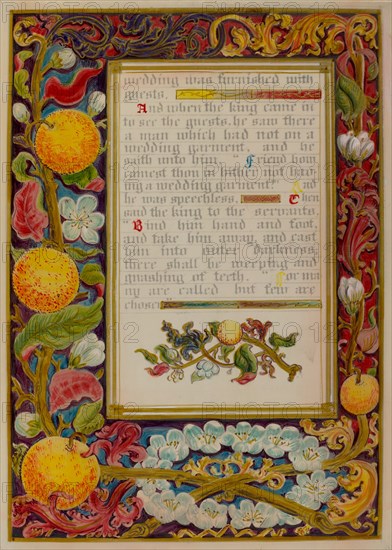 wedding was furnished with
guests.
And when the king came in
to see the guests, he saw there
a man which had not on a
wedding garment, and he
saith unto him Friend how
camest thou in hither not hav
ing a wedding garment? And
he was speechless. Then
said the king to the servants
Bind him hand and foot
and take him away, and cast
him into outer darkness,
there shall be weeping and
gnashing of teeth. For ma
ny are called but few are
chosen
PHOTO12